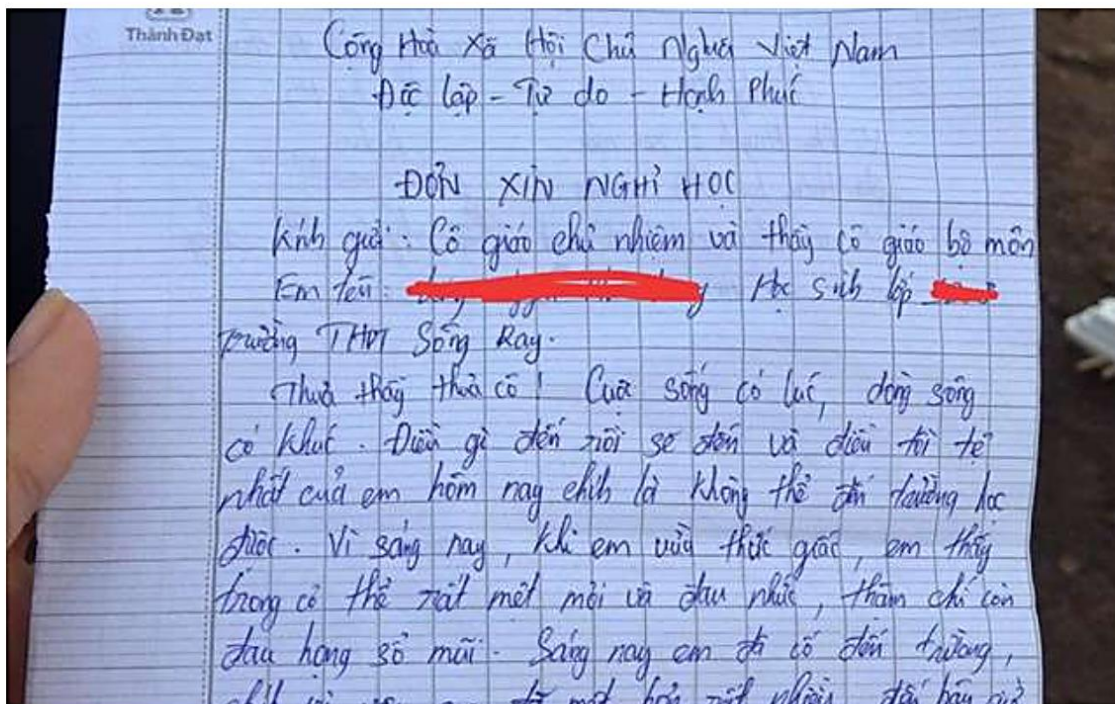 Thành Đạt
Cộng Hoà Xã Hội Chủ Nghĩa Việt Nam
Độc lập - Tự do - Hạnh Phúc
ĐƠN XIN NGHỈ HỌC
Kính gửi: Cô giáo chủ nhiệm và thầy cô giáo bộ môn
Em tên: Học sinh lớp
Trường THPT Sông Ray.
Thưa thầy thưa cô! Cuộc sống có lúc, dòng sông
có khúc. Điều gì đến rồi sẽ đến và điều tồi tệ
nhất của em hôm nay chính là không thể đến trường học
được. Vì sáng nay, khi em vừa thức giấc, em thấy
trong cơ thể rất mệt mỏi và đau nhức, thậm chí còn
đau họng sổ mũi. Sáng nay em đã cố đến trường,